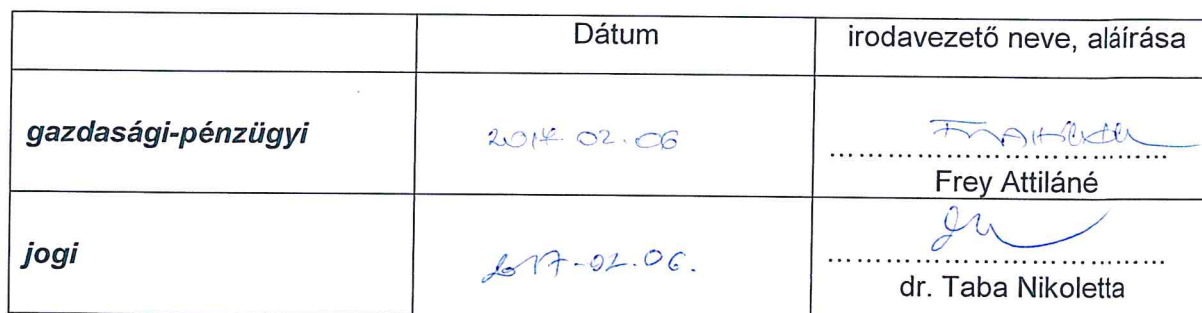 Dátum
irodavezető neve, aláírása
gazdasági-pénzügyi
2017.02.06
..............................
Frey Attiláné
jogi
2017-02.06.
..............................
dr. Taba Nikoletta